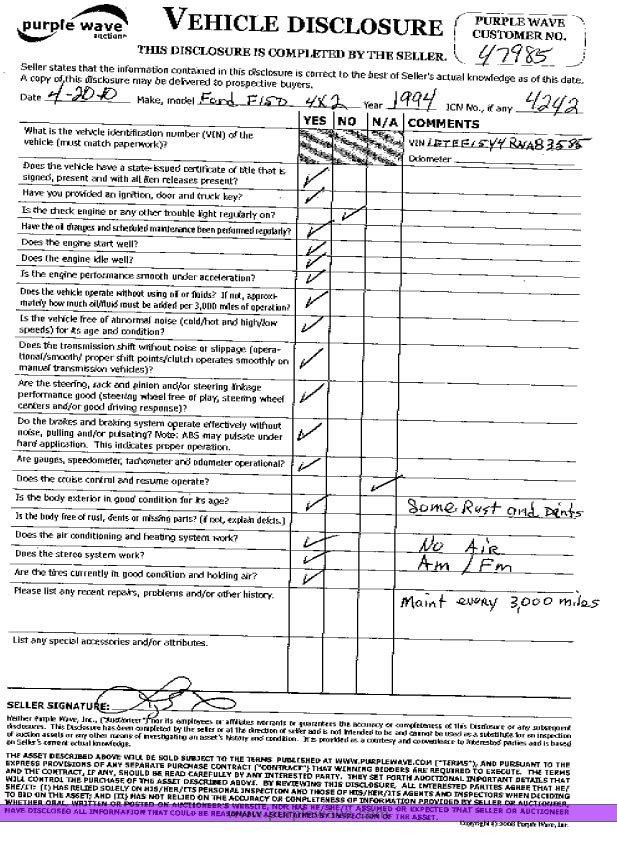 purple wave
auction
VEHICLE DISCLOSURE
THIS DISCLOSURE IS COMPLETED BY THE SELLER.
PURPLE WAVE
CUSTOMER NO.
47985
Seller states that the information contained in this disclosure is correct to the best of Seller's actual knowledge as of this date.
A copy of this disclosure may be delivered to prospective buyers.
Date 4-20-10 Make, model Ford F150 4X2 Year 1994 ICN No., if any 4242
YES NO N/A COMMENTS
What is the vehicle identification number (VIN) of the
vehicle (must match paperwork)?
VIN
Odometer
Does the vehicle have a state-issued certificate of title that is
signed, present and with all lien releases present?
Have you provided an ignition, door and truck key?
Is the check engine or any other trouble light regularly on?
Have the oil changes and scheduled maintenance been performed regularly?
Does the engine start well?
Does the engine idle well?
Is the engine performance smooth under acceleration?
Does the vehicle operate without using oil or fluids? If not, approxi-
mately how much oil/fluid must be added per 3,000 miles of operation?
Is the vehicle free of abnormal noise (cold/hot and high/low
speeds) for its age and condition?
Does the transmission shift without noise or slippage (opera-
tional/smooth/ proper shift points/clutch operates smoothly on
manual transmission vehicles)?
Are the steering, rack and pinion and/or steering linkage
performance good (steering wheel free of play, steering wheel
centers and/or good driving response)?
Do the brakes and braking system operate effectively without
noise, pulling and/or pulsating? Note: ABS may pulsate under
hard application. This indicates proper operation.
Are gauges, speedometer, tachometer and odometer operational?
Does the cruise control and resume operate?
Is the body exterior in good condition for its age?
Some Rust and Dents
Is the body free of rust, dents or missing parts? (if not, explain defects.)
Does the air conditioning and heating system work?
No Air
Does the stereo system work?
Am / Fm
Are the tires currently in good condition and holding air?
Please list any recent repairs, problems and/or other history.
Maint every 3,000 miles
List any special accessories and/or attributes.
SELLER SIGNATURE:
Neither Purple Wave, Inc., ("Auctioneer") nor its employees or affiliates warrants or guarantees the accuracy or completeness of this Disclosure or any subsequent
disclosures. This Disclosure has been completed by the seller or at the direction of seller and is not intended to and cannot be used as a substitute for an inspection
of auction assets or any other means of investigating an asset's history and condition. It is provided as a courtesy and convenience to interested parties and is based
on Seller's current actual knowledge.
THE ASSET DESCRIBED ABOVE WILL BE SOLD SUBJECT TO THE TERMS PUBLISHED AT WWW.PURPLEWAVE.COM ("TERMS"), AND PURSUANT TO THE
EXPRESS PROVISIONS OF ANY SEPARATE PURCHASE CONTRACT ("CONTRACT") THAT WINNING BIDDERS ARE REQUIRED TO EXECUTE. THE TERMS
AND THE CONTRACT, IF ANY, SHOULD BE READ CAREFULLY BY ANY INTERESTED PARTY. THEY SET FORTH ADDITIONAL IMPORTANT DETAILS THAT
WILL CONTROL THE PURCHASE OF THE ASSET DESCRIBED ABOVE. BY REVIEWING THIS DISCLOSURE, ALL INTERESTED PARTIES AGREE THAT HE/
SHE/IT: (I) HAS RELIED SOLELY ON HIS/HER/ITS PERSONAL INSPECTION AND THOSE OF HIS/HER/ITS AGENTS AND INSPECTORS WHEN DECIDING
TO BID ON THE ASSET; AND (II) HAS NOT RELIED ON THE ACCURACY OR COMPLETENESS OF INFORMATION PROVIDED BY SELLER OR AUCTIONEER,
WHETHER ORAL, WRITTEN OR POSTED ON AUCTIONEER'S WEBSITE, NOR HAS HE/SHE/IT ASSUMED OR EXPECTED THAT SELLER OR AUCTIONEER
HAVE DISCLOSED ALL INFORMATION THAT COULD BE REASONABLY ASCERTAINED BY INSPECTION OF THE ASSET.
Copyright © 2008 Purple Wave, Inc.